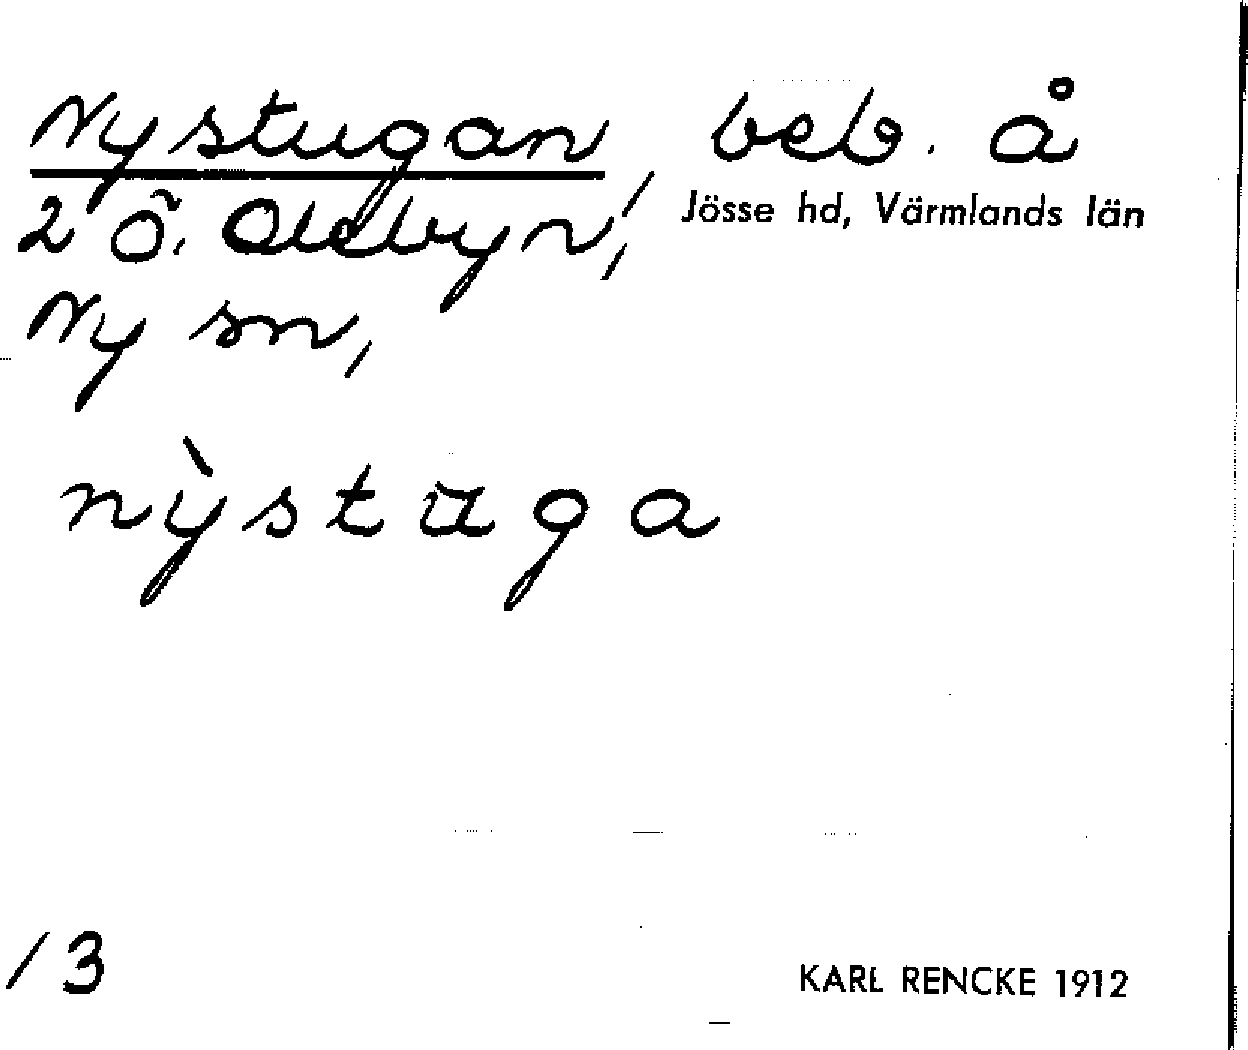 Nystugan, beb. å
2 Ö. Oleby n,
Jösse hd, Värmlands län
Ny sn,
nỳstuga
/3
KARL RENCKE 1912